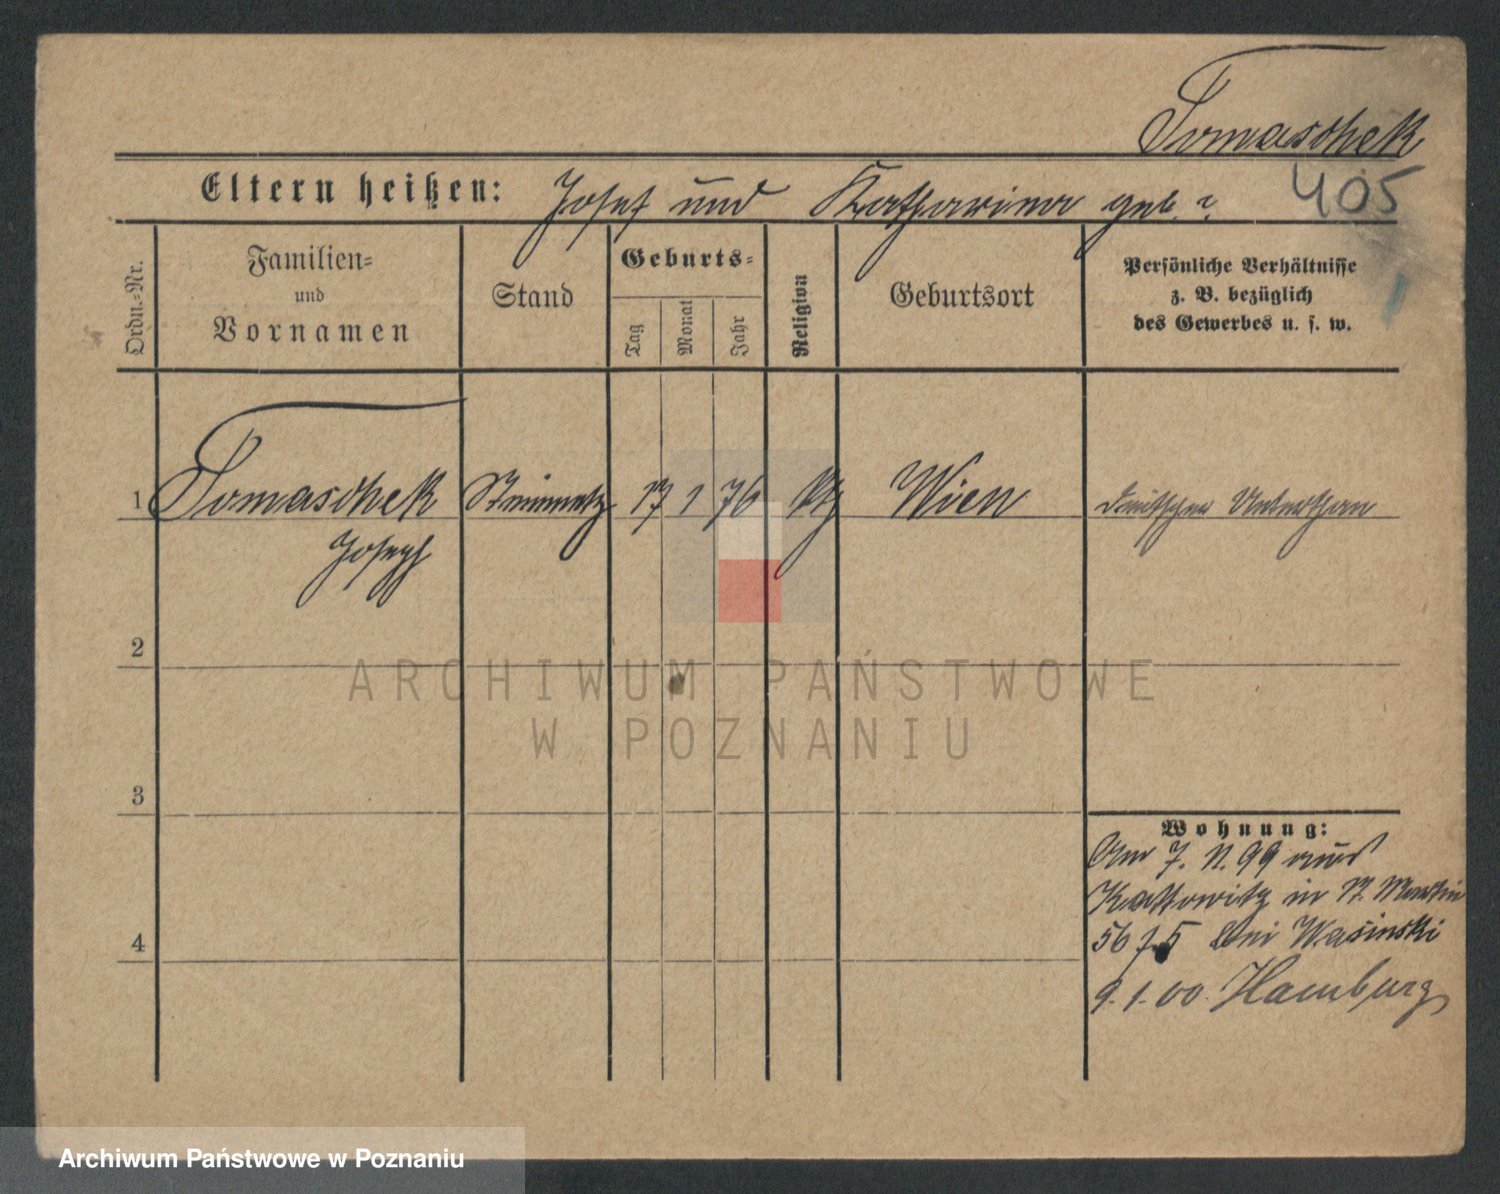 Tomaschek
Eltern heißen: Josef und Katharina geb. ?
405
Ordn.-Nr.
Familien-
und
Vornamen
Stand
Geburts-
Tag
Monat
Jahr
Religion
Geburtsort
Persönliche Verhältnisse
z. B. bezüglich
des Gewerbes u. s. w.
1 Tomaschek Steinmetz 17 1 76 Wien deutscher Unterthan
Joseph
2
ARCHIWUM PAŃSTWOWE
W POZNANIU
3
Wohnung:
Am 7. 11. 99 aus
Kattowitz in St. Martin
56 bei Wasinski
4
9. 1. 00. Hamburg
Archiwum Państwowe w Poznaniu